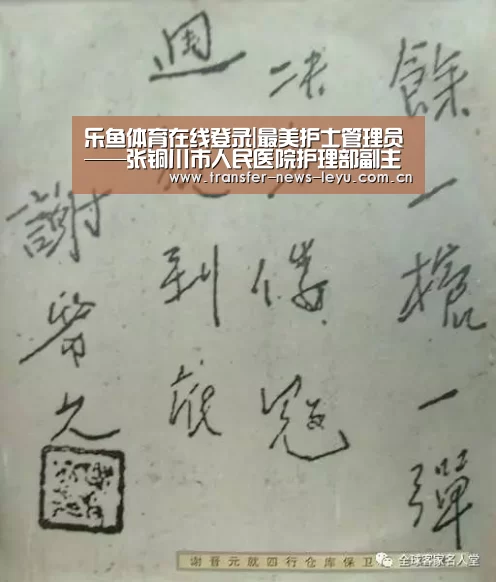 餘一槍一彈
决倭寇
週到底
謝晉元
乐鱼体育在线登录|最美护士管理员
——张铜川市人民医院护理部副主
www.transfer-news-leyu.com.cn
谢晋元就四行仓库保卫
全球客家名人堂